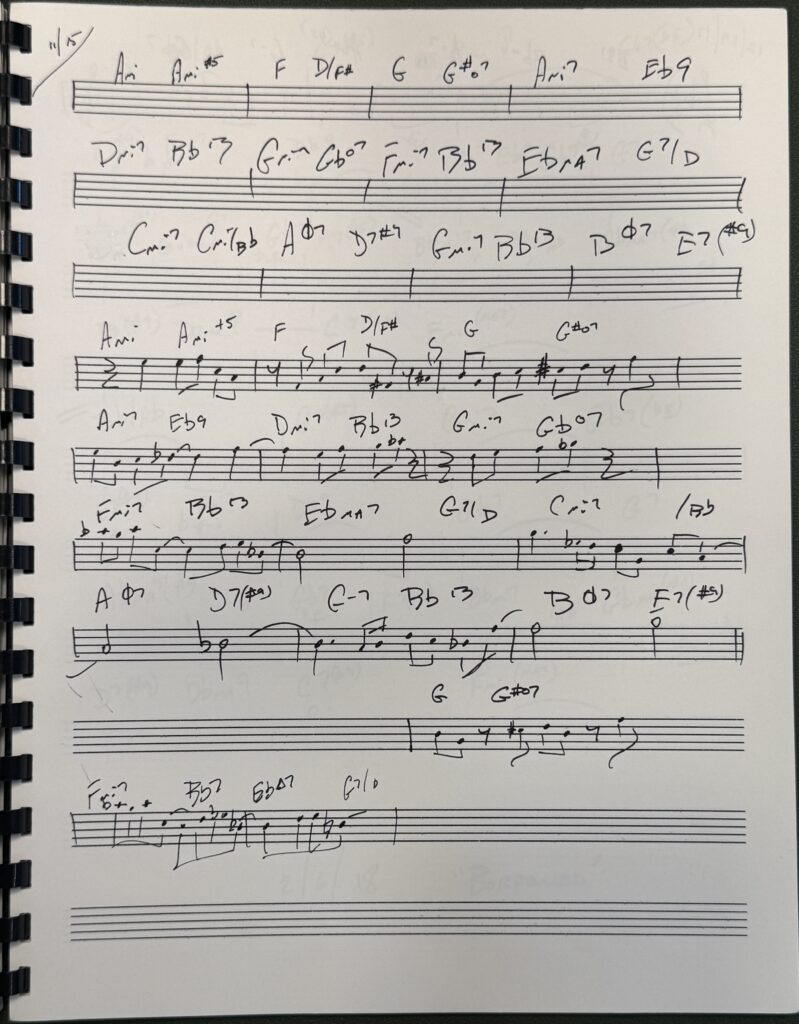 11/15
Ami Ami#5 F D/F# G G#o7 Ami7 Eb9
Dmi7 Bb13 Gmi7 Gbo7 Fmi7 Bb13 EbMA7 G7/D
Cmi7 Cmi7/Bb Aø7 D7#9 Gmi7 Bb13 Bø7 E7(#9)
Ami Ami+5 F D/F# G G#o7
Ami7 Eb9 Dmi7 Bb13 Gmi7 Gbo7
Fmi7 Bb13 EbMA7 G7/D Cmi7 /Bb
Aø7 D7(#9) G-7 Bb13 Bø7 E7(#9)
G G#o7
Fmi7 Bb7 EbΔ7 G7/D